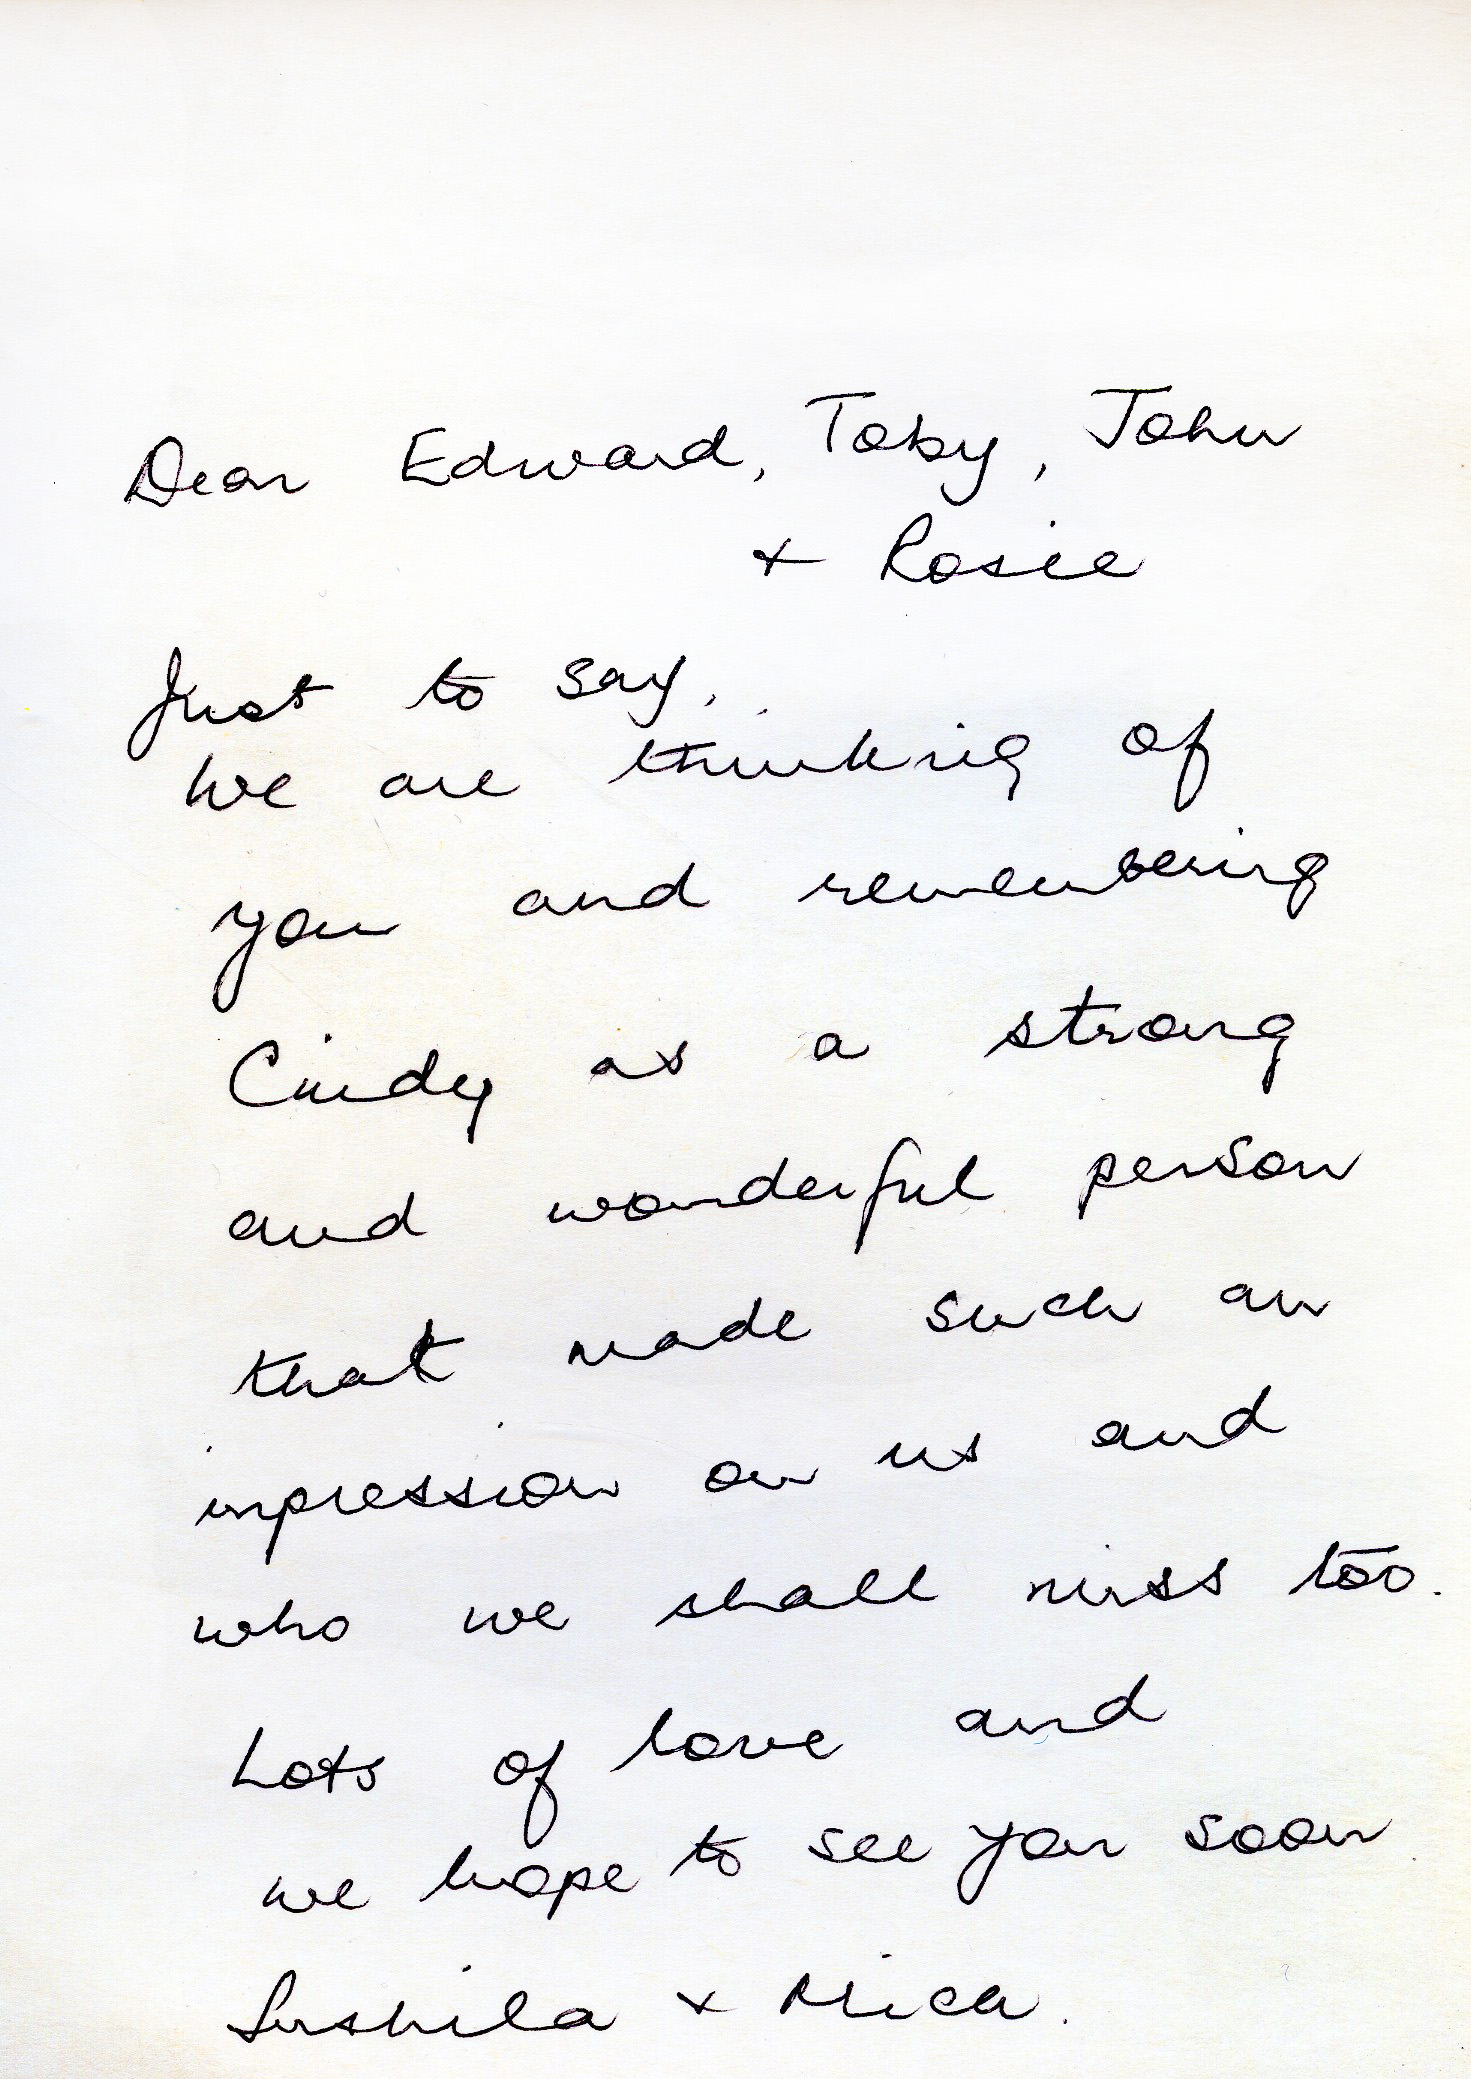 Dear Edward, Toby, John
+ Rosie
Just to say,
We are thinking of
you and remembering
Cindy as a strong
and wonderful person
that made such an
impression on us and
who we shall miss too.
Lots of love and
we hope to see you soon
Sushila + Mica.